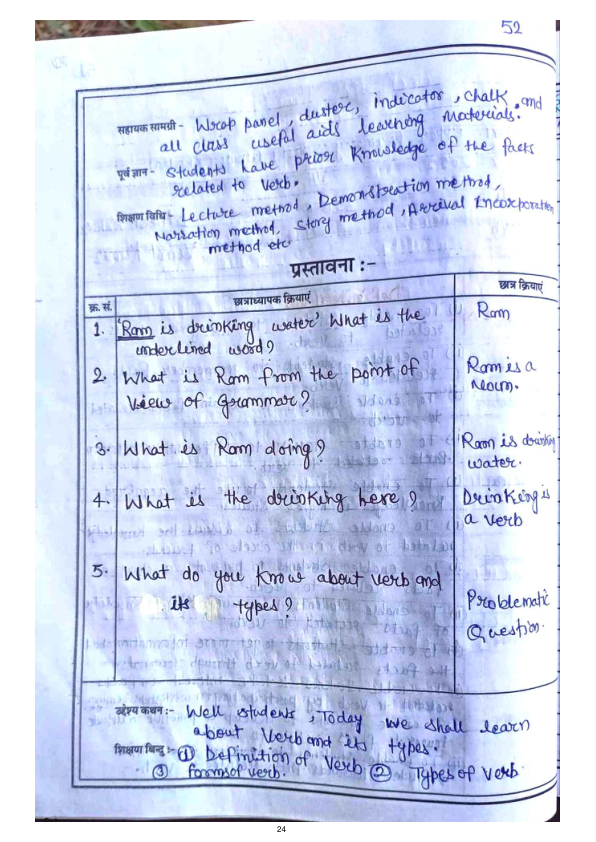 52
सहायक सामग्री - Wrap panel, duster, indicator, chalk and
all class useful aids learning materials.
पूर्व ज्ञान - Students have prior knowledge of the facts
related to verb.
शिक्षण विधि - Lecture method, Demonstration method,
Narration method, Story method, Arrival Incorporation
method etc
प्रस्तावना :-
क्र. सं. छात्राध्यापक क्रियाएं छात्र क्रियाएं
1. 'Ram is drinking water' What is the Ram
underlined word?
2. What is Ram from the point of Ram is a
view of grammar? Noun.
3. What is Ram doing? Ram is drinking
water.
4. What is the drinking here? Drinking is
a verb
5. What do you know about verb and
its types? Problematic
Question.
उद्देश्य कथन :- Well students, Today we shall learn
about verb and its types.
शिक्षण बिन्दु :- ① Definition of verb ② Types of verb
③ forms of verb.
24